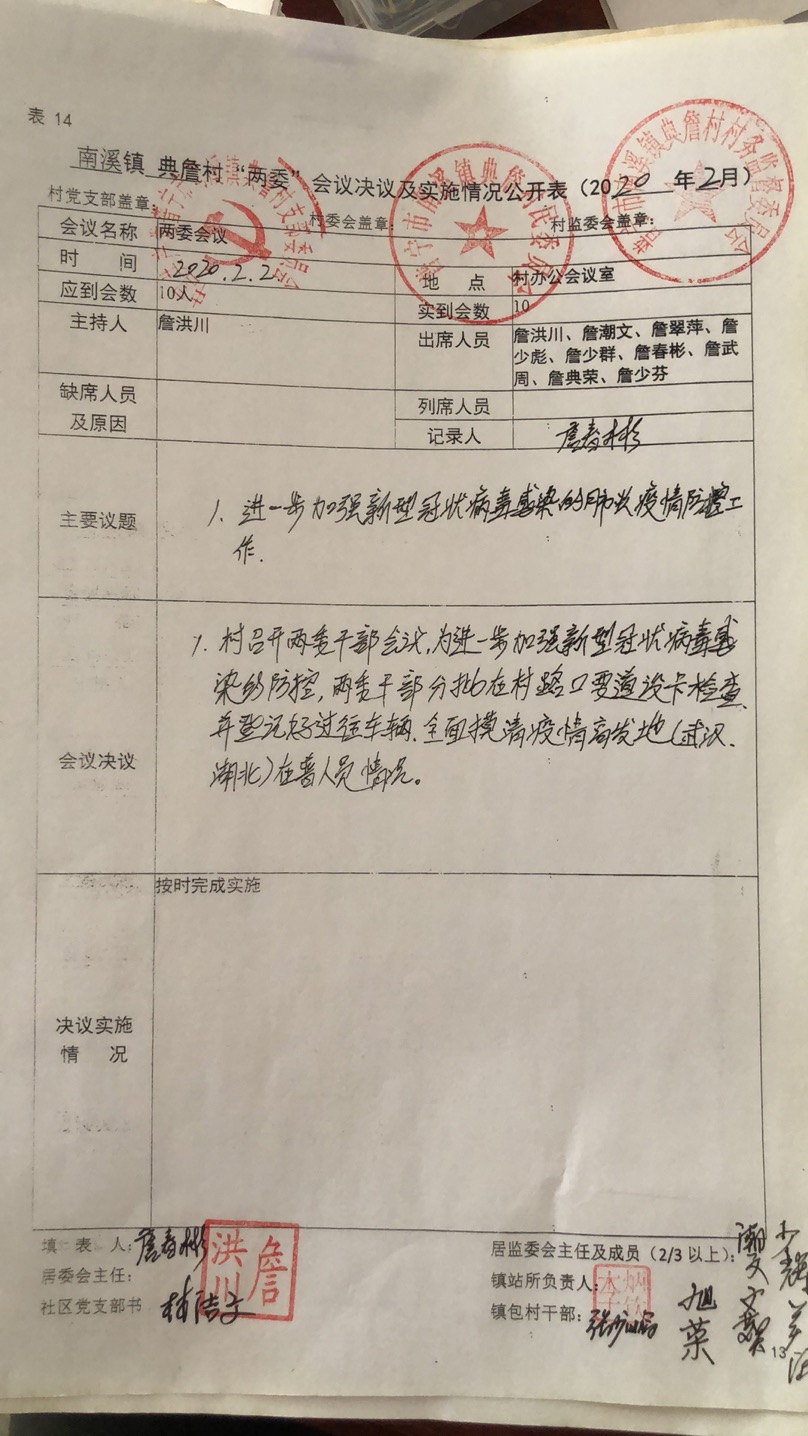 表 14
南溪镇 典詹村 “两委” 会议决议及实施情况公开表（2020 年2月）
村党支部盖章： 村委会盖章： 村监委会盖章：
会议名称 两委会议
时 间 2020.2.2. 地 点 村办公会议室
应到会数 10人 实到会数 10
主持人 詹洪川 出席人员 詹洪川、詹潮文、詹翠萍、詹
少彪、詹少群、詹春彬、詹武
周、詹典荣、詹少芬
缺席人员
及原因
列席人员
记录人 詹春彬
主要议题
1. 进一步加强新型冠状病毒感染的肺炎疫情防控工
作.
会议决议
1. 村召开两委干部会议,为进一步加强新型冠状病毒感
染的防控,两委干部分批在村路口要道设卡检查
并登记好过往车辆.全面摸清疫情高发地(武汉.
湖北)在普人员情况。
按时完成实施
决议实施
情 况
填 表 人：詹春彬
居委会主任：
社区党支部书
洪川詹
居监委会主任及成员（2/3 以上）：
镇站所负责人：
镇包村干部：
旭荣
13